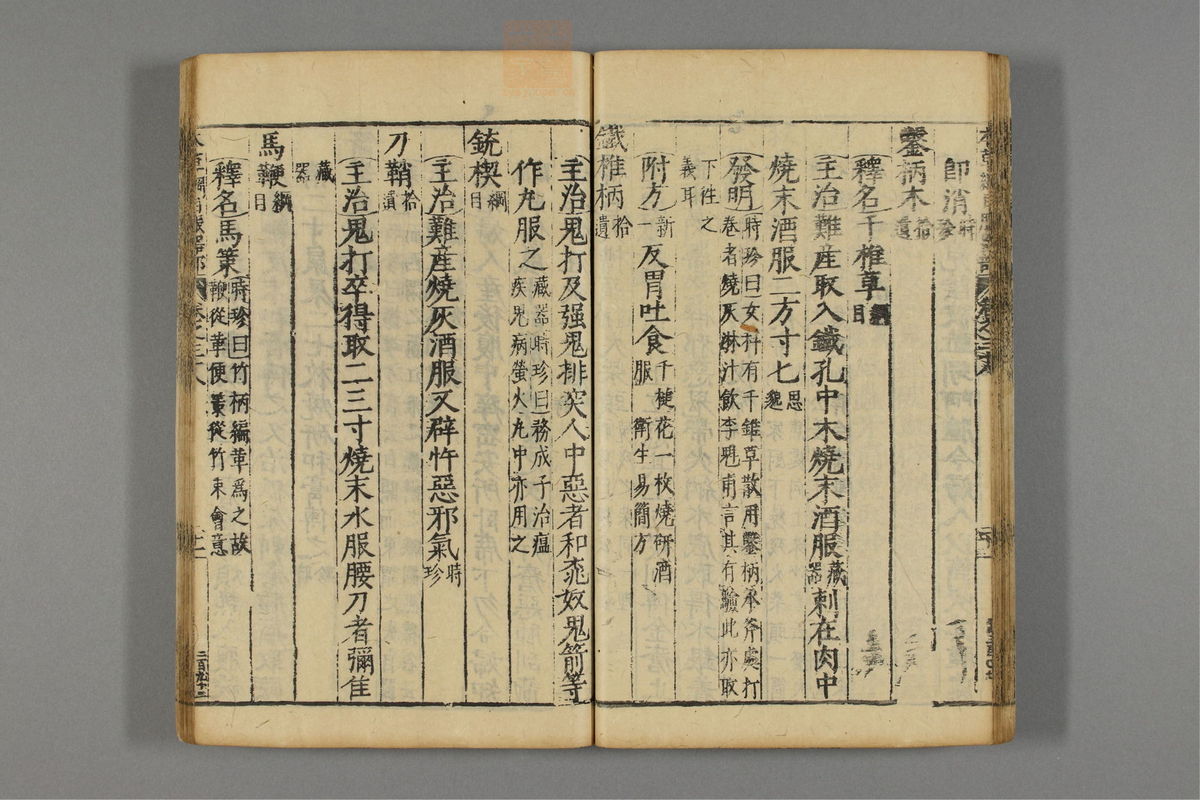 即消時珍
鑿柄木拾遺
釋名千椎草綱目
主治難産取入鐵孔中木燒末酒服藏器刺在肉中
燒末酒服二方寸七思邈
發明時珍曰女科有千錐草散用鑿柄承斧處打
卷者燒灰淋汁飲李魁甫言其有驗此亦取
下往之
義耳
附方新一反胃吐食千槌花一枚燒研酒
服　衛生易簡方
鐵椎柄拾遺
主治鬼打及强鬼排突人中惡者和桃奴鬼箭等
作丸服之藏器時珍曰務成子治瘟
疾鬼病螢火丸中亦用之
銃楔綱目
主治難産燒灰酒服又辟忤惡邪氣時珍
刀鞘拾遺
主治鬼打卒得取二三寸燒末水服腰刀者彌佳
藏器
馬鞭綱目
釋名馬策時珍曰竹柄編革爲之故
鞭從革便策從竹朿會意